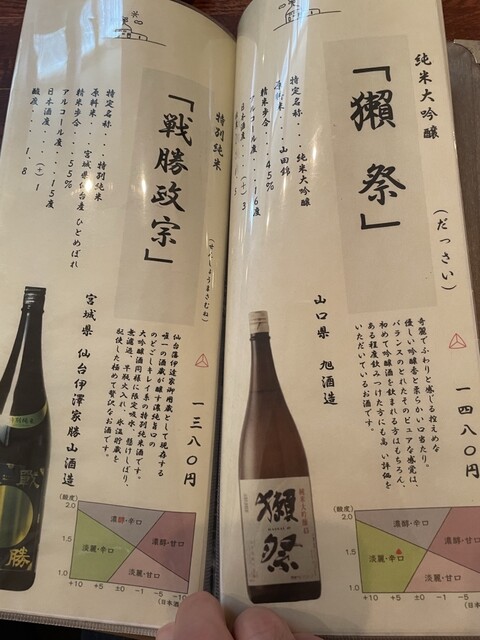 純米大吟醸
「獺祭」
(だっさい)
特定名称...純米大吟醸
原料米...山田錦
精米歩合...45%
アルコール度...16度
日本酒度...(+)3
山口県 旭酒造
一四八〇円
奇麗でふわりと感じる控えめな
優しい吟醸香と柔らかい口当たり。
バランスのとれたそのピュアな感覚は、
初めて吟醸酒を飲まれる方はもちろん、
ある程度飲みつけた方にも高い評価を
いただいているお酒です。
純米大吟醸
獺祭
(酸度)
2.0
1.5
1.0
濃醇・辛口
濃醇・甘口
淡麗・辛口
淡麗・甘口
+10 +5 ±0 -1 -5
(日本
特別純米
「戦勝政宗」
(せんしょうまさむね)
特定名称...特別純米
原料米...宮城県仙台産 ひとめぼれ
精米歩合...55%
アルコール度...15度
日本酒度...(+)1
酸度...1.8
宮城県 仙台伊澤家勝山酒造
一三八〇円
仙台藩伊達家御用蔵として現存する
唯一の酒蔵が醸す濃純旨口の
のどごしキレイ系の特別純米酒です。
大吟醸酒同様に限定吸水、麹けしばり、
無濾過、早瓶火入れ、氷温貯蔵を
駆使した極めて贅沢なお酒です。
戦
勝
(酸度)
2.0
1.5
1.0
濃醇・辛口
濃醇・甘口
淡麗・辛口
淡麗・甘口
+10 +5 ±0 -1 -5 -10
(日本酒